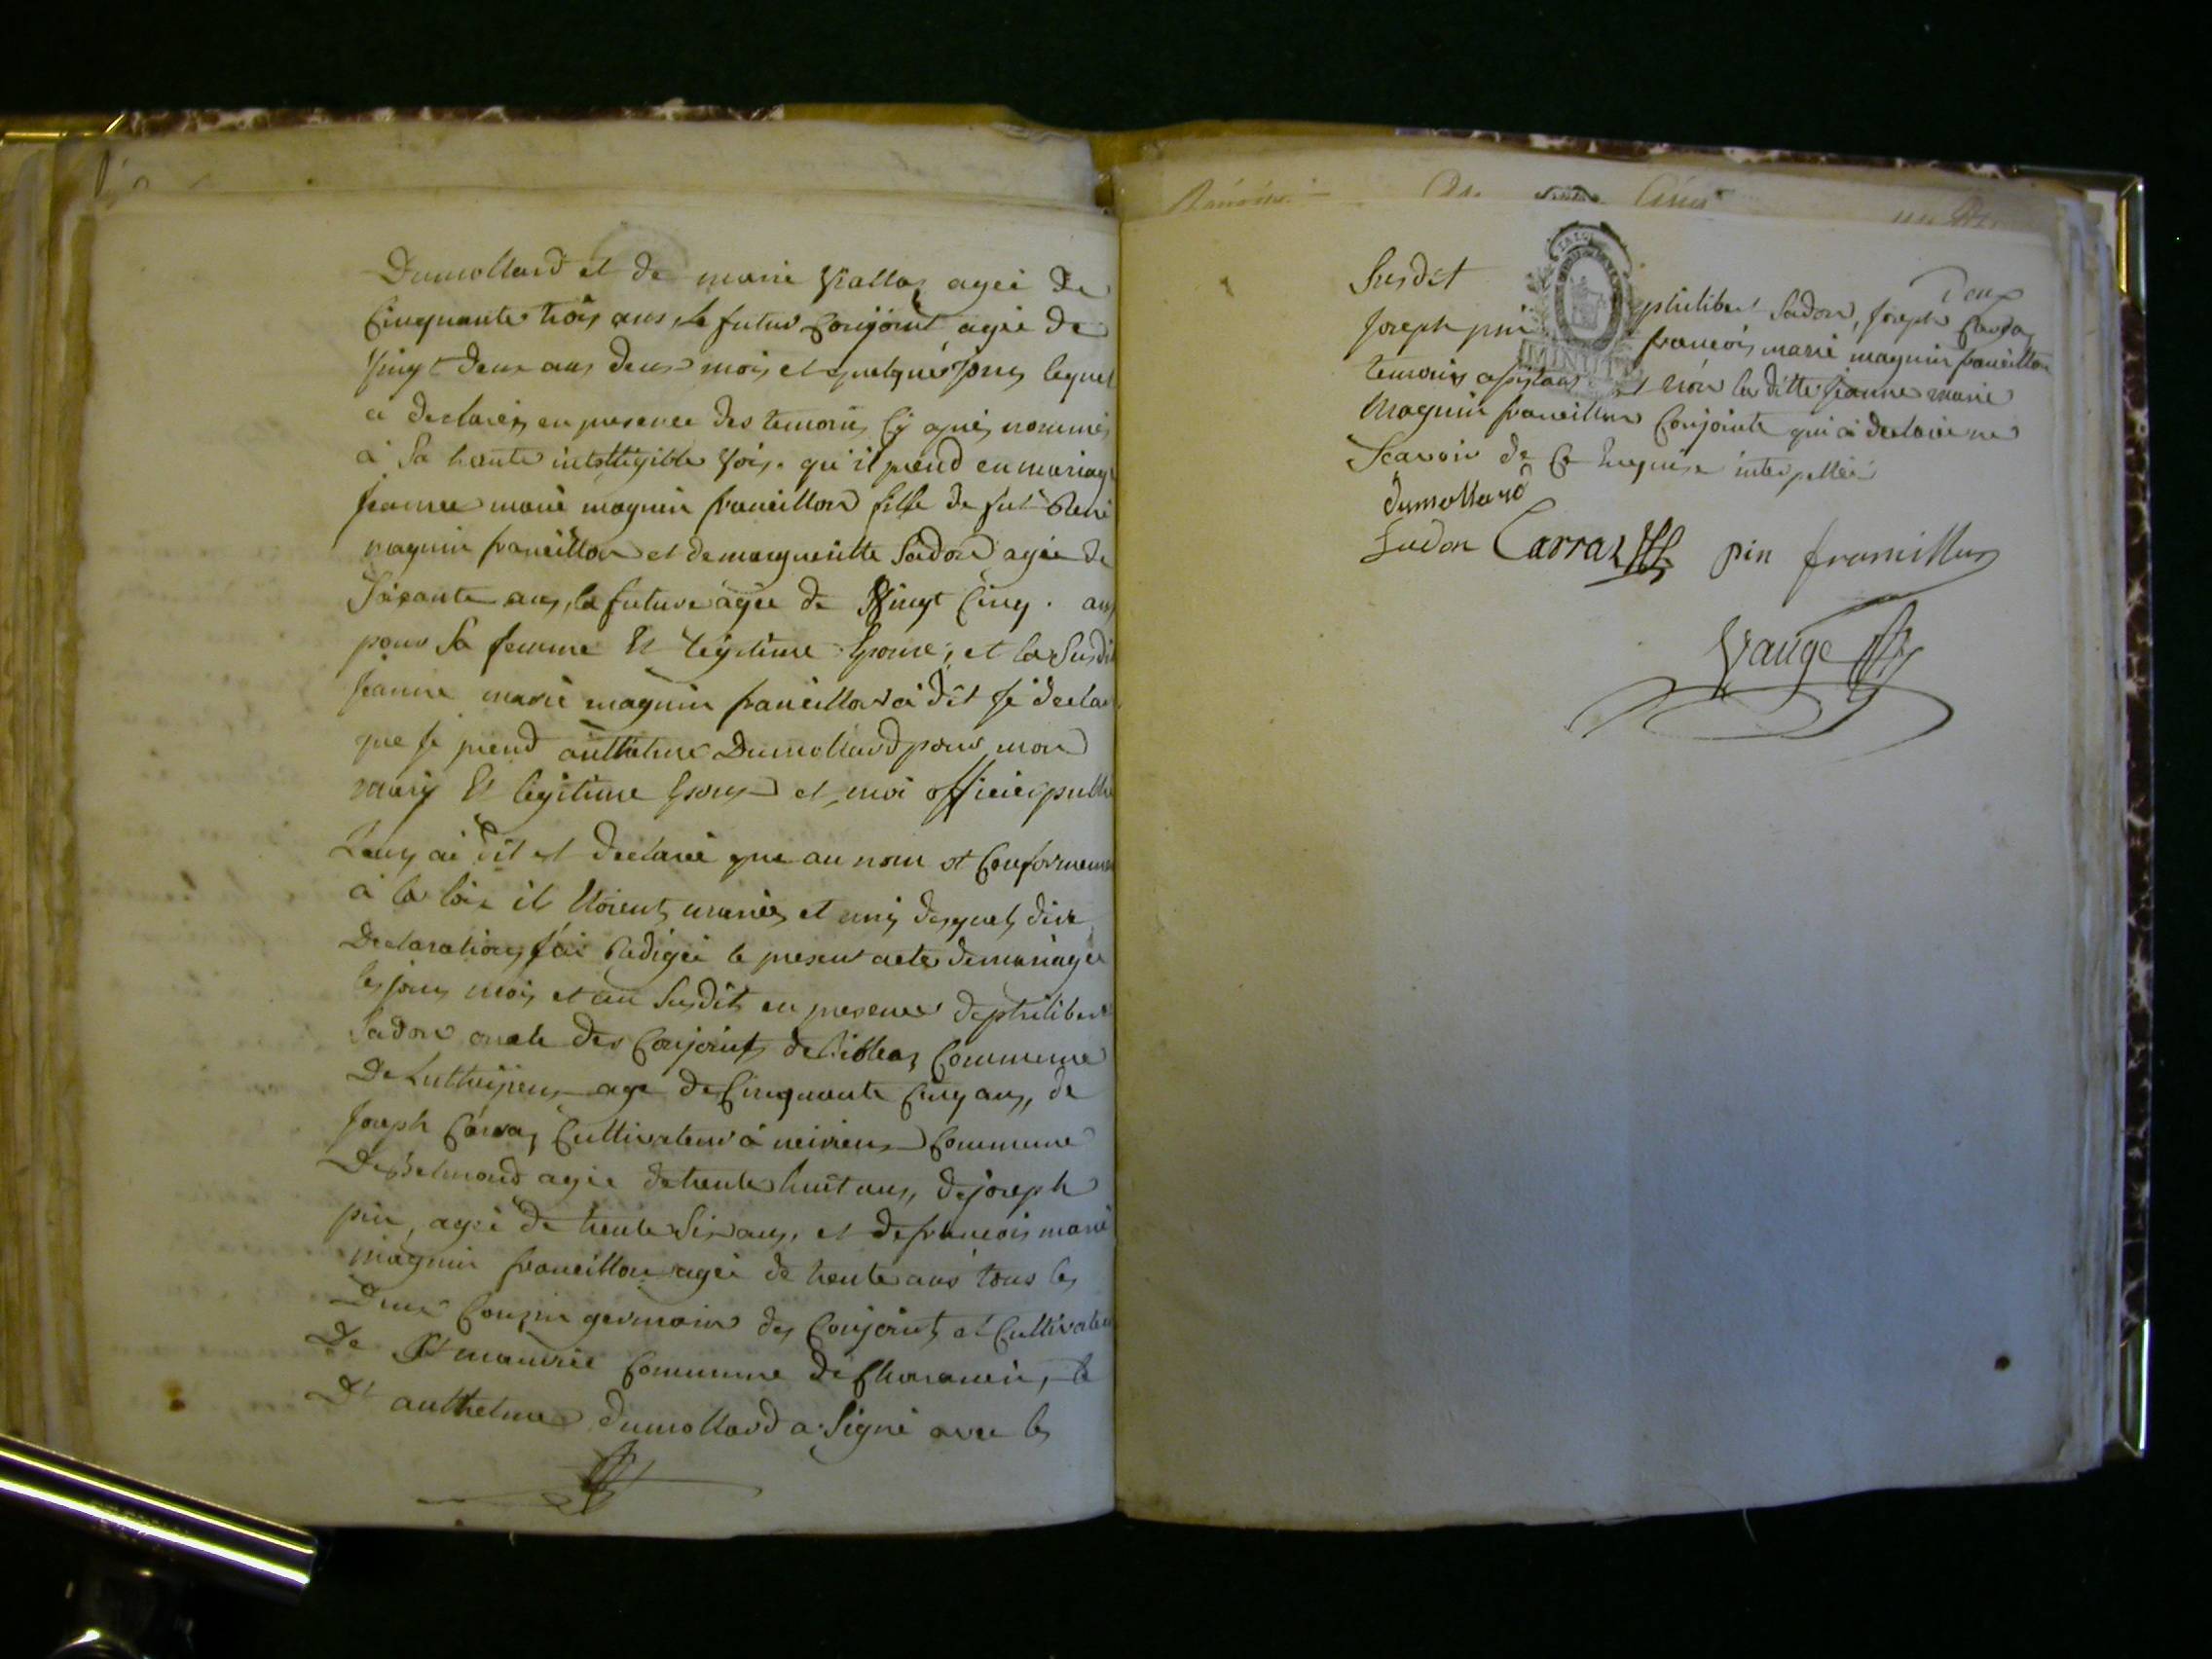 Dumollard et de marie Viallaz ageé de
Cinquante trois ans, le futur Conjoint ageé de
Vingt deux ans deux mois et quelque jours lequel
a declareé en presence des temoins Cy aprés nommés
à Sa haute intelligible Voix. qu'il prend en mariage
jeanne marie magnin franeillon fille de fut René
magnin francillon et de margueritte Sadon ageé de
Soixante ans, la future agée de Vingt Cinq. ans
pour Sa femme Et legitime Epouse, et la Susdit
jeanne marie magnin francillon à dit je declar
que je prend anthelme Dumollard pour mon
mary Et legitime Epoux et moi officier publi
Leur ai dit et declareé que au nom et Conformemen
à la loix il Etoient mariés et unis desquels dite
Declarations j'ai Redigéé le present acte de mariage
les jour mois et an Susdits en presence de philibert
Sadon oncle des Conjoints de Commune
De Luthezieu age de Cinquante Cinq ans, de
joseph Carraz Cultivateur à neirieu Commune
De Belmond ageé de trente huit ans, de joseph
pin, ageé de trente Six ans, et de francois marie
magnin francillon ageé de trente ans tous les
Deux Couzin germain des Conjoints et Cultivateur
De St maurice Commune de Charancin, le
Dt anthelme Dumollard a Signé avec les
Susdit
philibert Sadon, joseph Carraz
Joseph pin francois marie magnin francillon
temoins assistant et non la ditte jeanne marie
Magnin francillon Conjointe qui à declaré ne
Scavoir de Ce Enquise interpelleé
dumollard
Sadon Carraz pin francillon
Vauge
MINUT